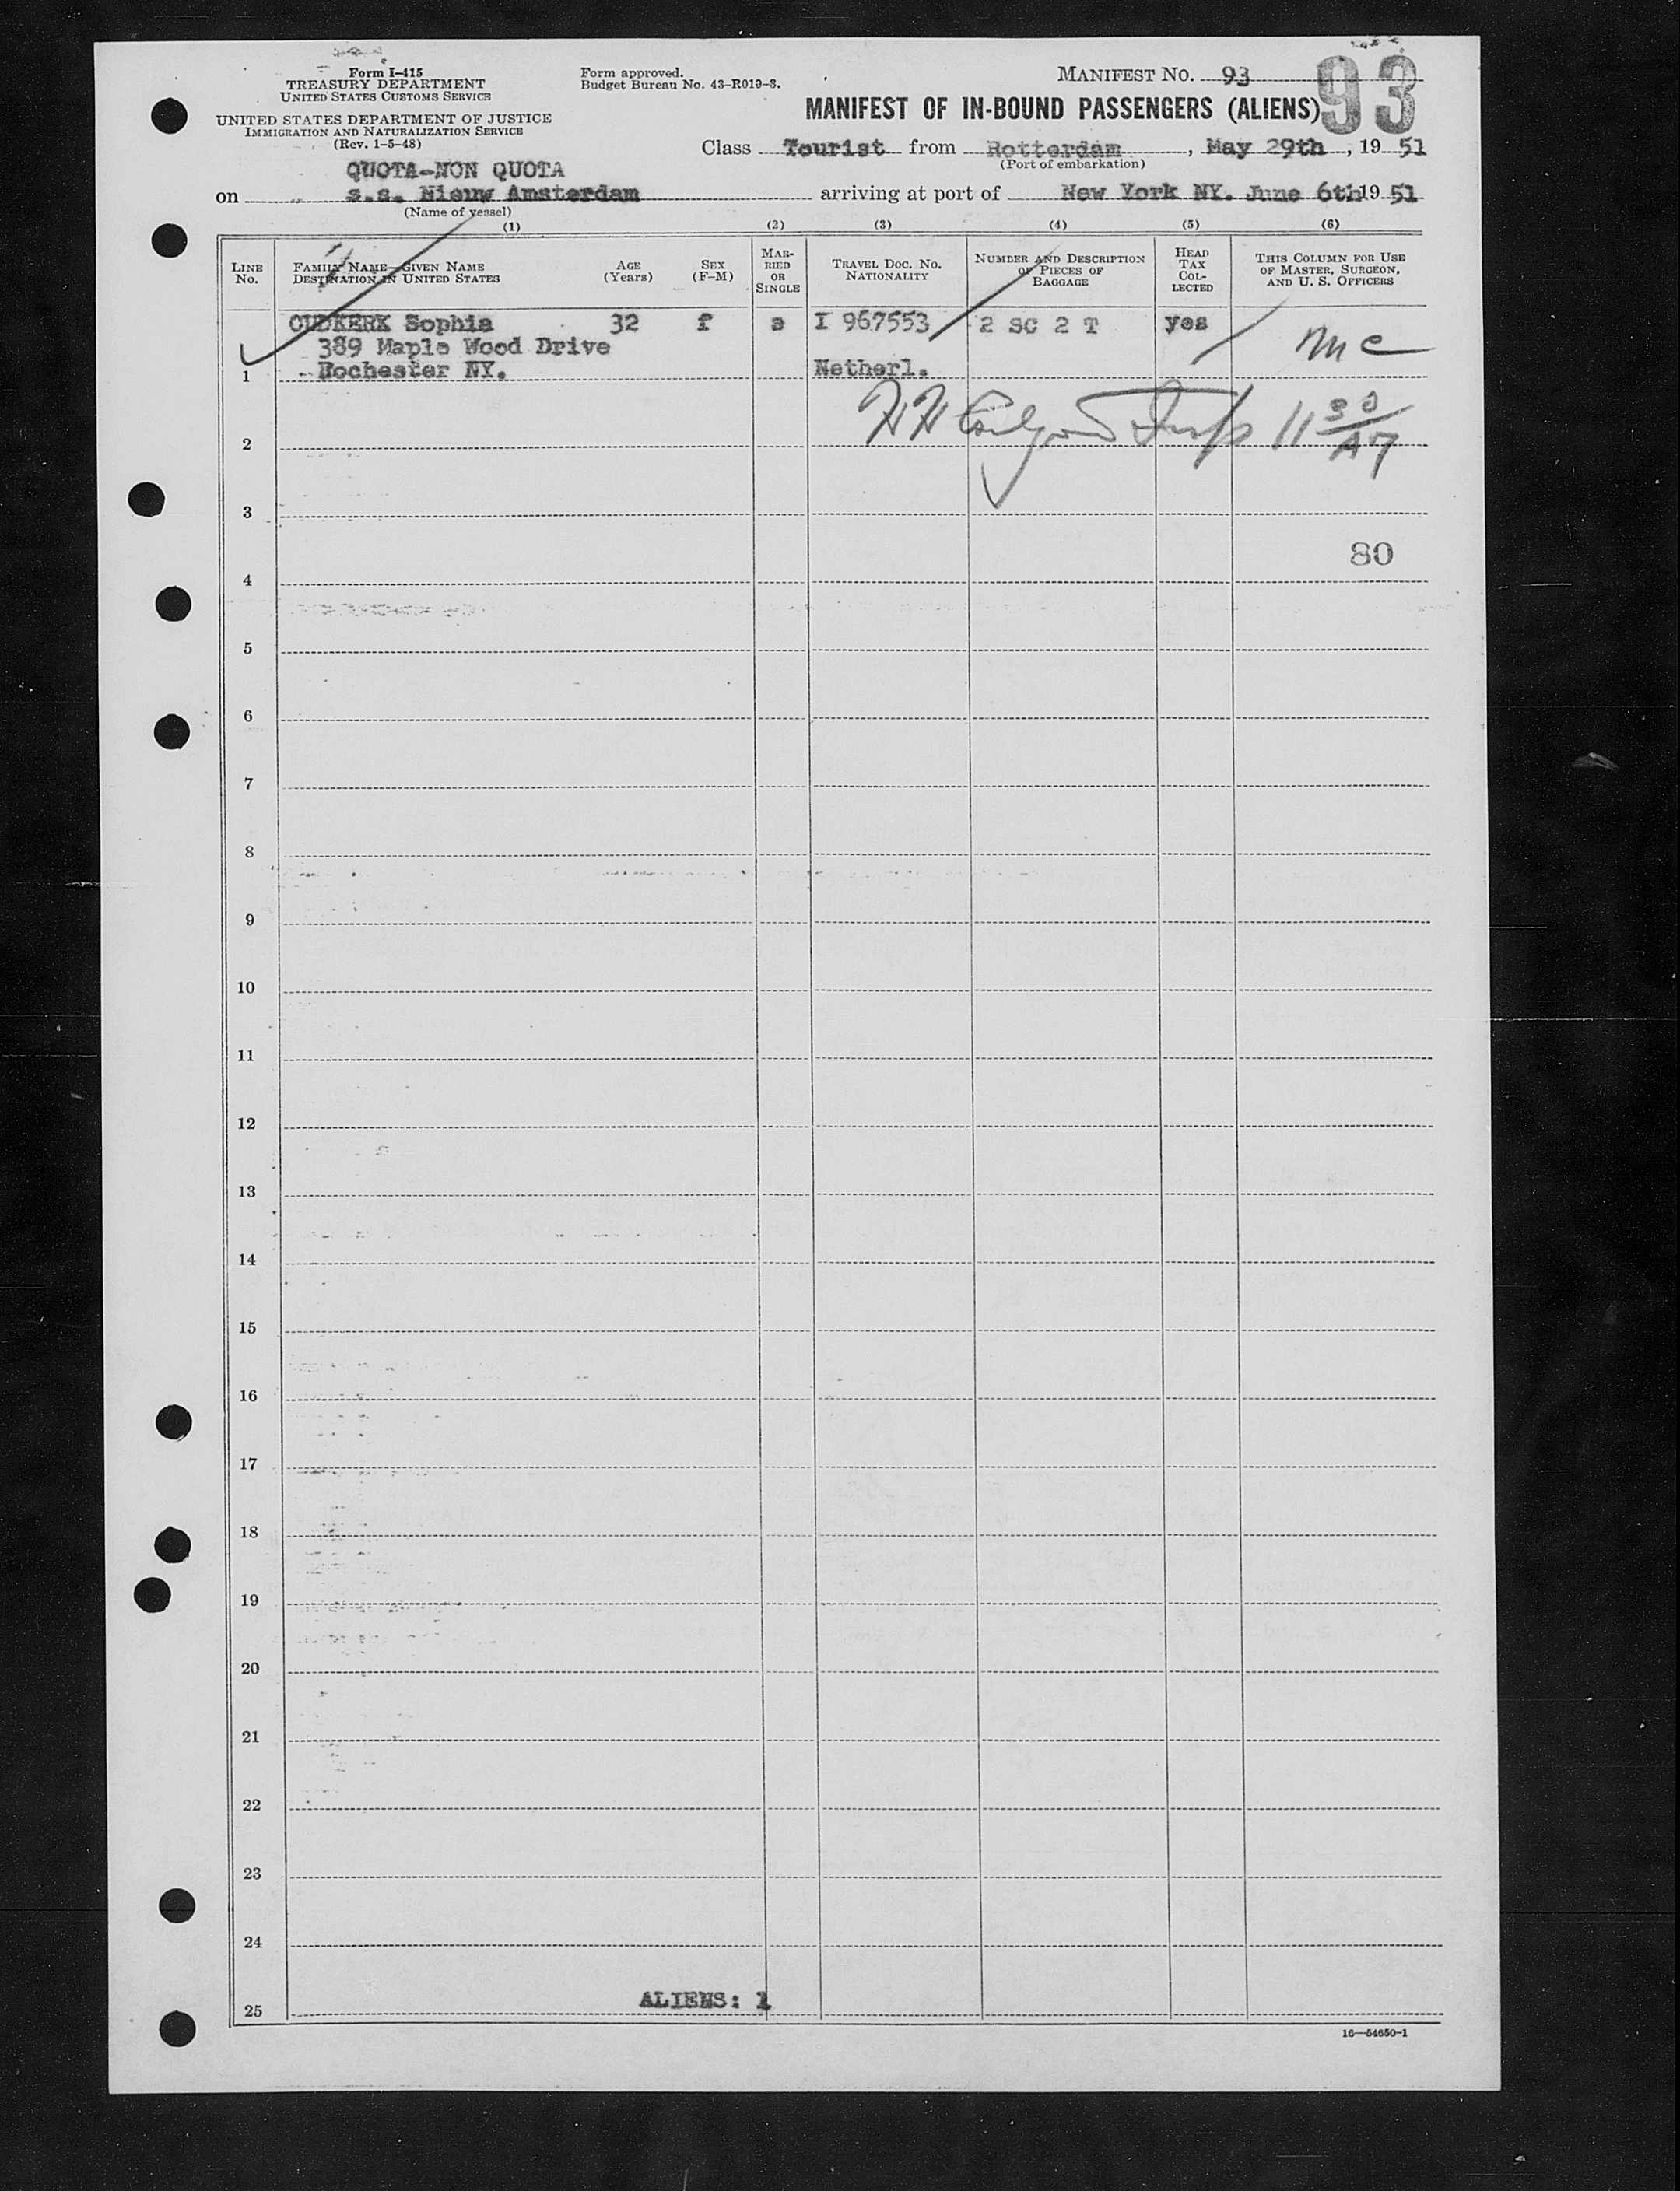 Form I-415
TREASURY DEPARTMENT
UNITED STATES CUSTOMS SERVICE
UNITED STATES DEPARTMENT OF JUSTICE
IMMIGRATION AND NATURALIZATION SERVICE
(Rev. 1-5-48)
Form approved.
Budget Bureau No. 43-R019-3.
MANIFEST No. 93
93
MANIFEST OF IN-BOUND PASSENGERS (ALIENS)
Class Tourist from Rotterdam, May 29th, 19 51
(Port of embarkation)
QUOTA-NON QUOTA
on s.s. Nieuw Amsterdam arriving at port of New York NY. June 6th 19 51
(Name of vessel)
(1) (2) (3) (4) (5) (6)
LINE No. FAMILY NAME—GIVEN NAME DESTINATION IN UNITED STATES AGE (Years) SEX (F-M) MARRIED OR SINGLE TRAVEL DOC. NO. NATIONALITY NUMBER AND DESCRIPTION OF PIECES OF BAGGAGE HEAD TAX COLLECTED THIS COLUMN FOR USE OF MASTER, SURGEON, AND U. S. OFFICERS
OUDKERK Sophia 32 f s I 967553 2 SC 2 T yes
389 Maple Wood Drive
1 Rochester NY. Netherl.
11 30
2
3
80
4
5
6
7
8
9
10
11
12
13
14
15
16
17
18
19
20
21
22
23
24
ALIENS: 1
25
16—54650-1